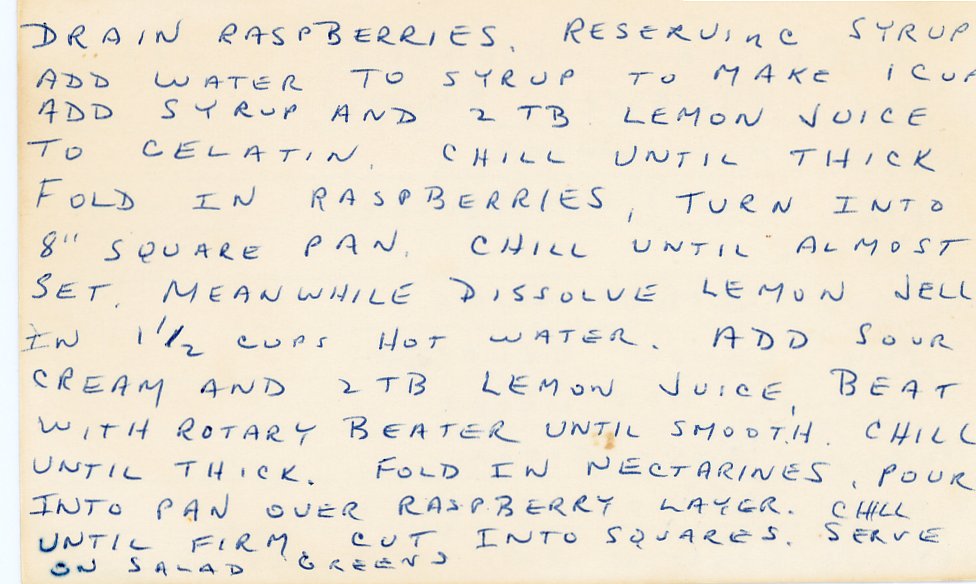 DRAIN RASPBERRIES. RESERVING SYRUP
ADD WATER TO SYRUP TO MAKE 1 CUP
ADD SYRUP AND 2 TB LEMON JUICE
TO GELATIN. CHILL UNTIL THICK
FOLD IN RASPBERRIES, TURN INTO
8" SQUARE PAN. CHILL UNTIL ALMOST
SET. MEANWHILE DISSOLVE LEMON JELL
IN 1 1/2 CUPS HOT WATER. ADD SOUR
CREAM AND 2 TB LEMON JUICE, BEAT
WITH ROTARY BEATER UNTIL SMOOTH. CHILL
UNTIL THICK. FOLD IN NECTARINES, POUR
INTO PAN OVER RASPBERRY LAYER. CHILL
UNTIL FIRM, CUT INTO SQUARES. SERVE
ON SALAD GREENS